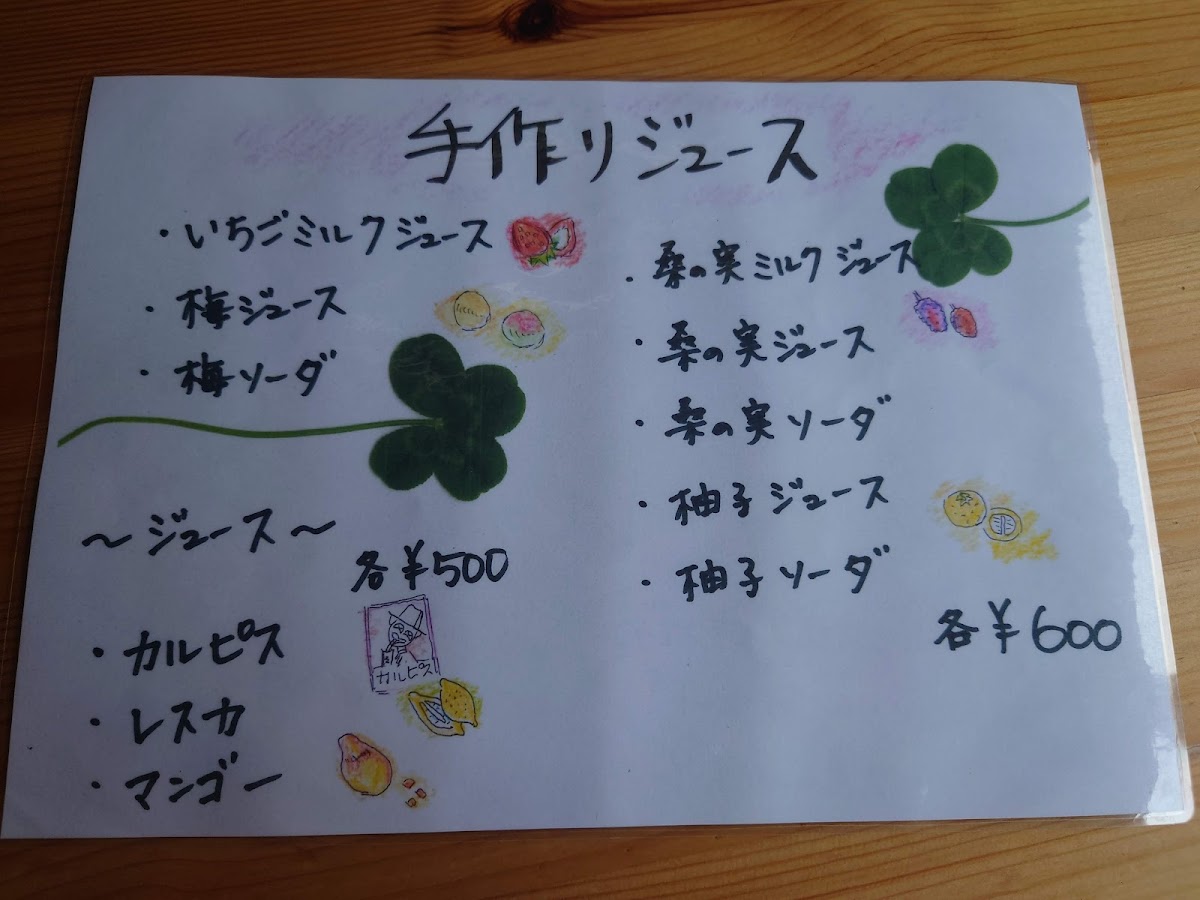 手作りジュース
・いちごミルクジュース
・梅ジュース
・梅ソーダ
・桑の実ミルクジュース
・桑の実ジュース
・桑の実ソーダ
・柚子ジュース
・柚子ソーダ
各¥600
～ジュース～
各¥500
・カルピス
・レスカ
・マンゴー
カルピス